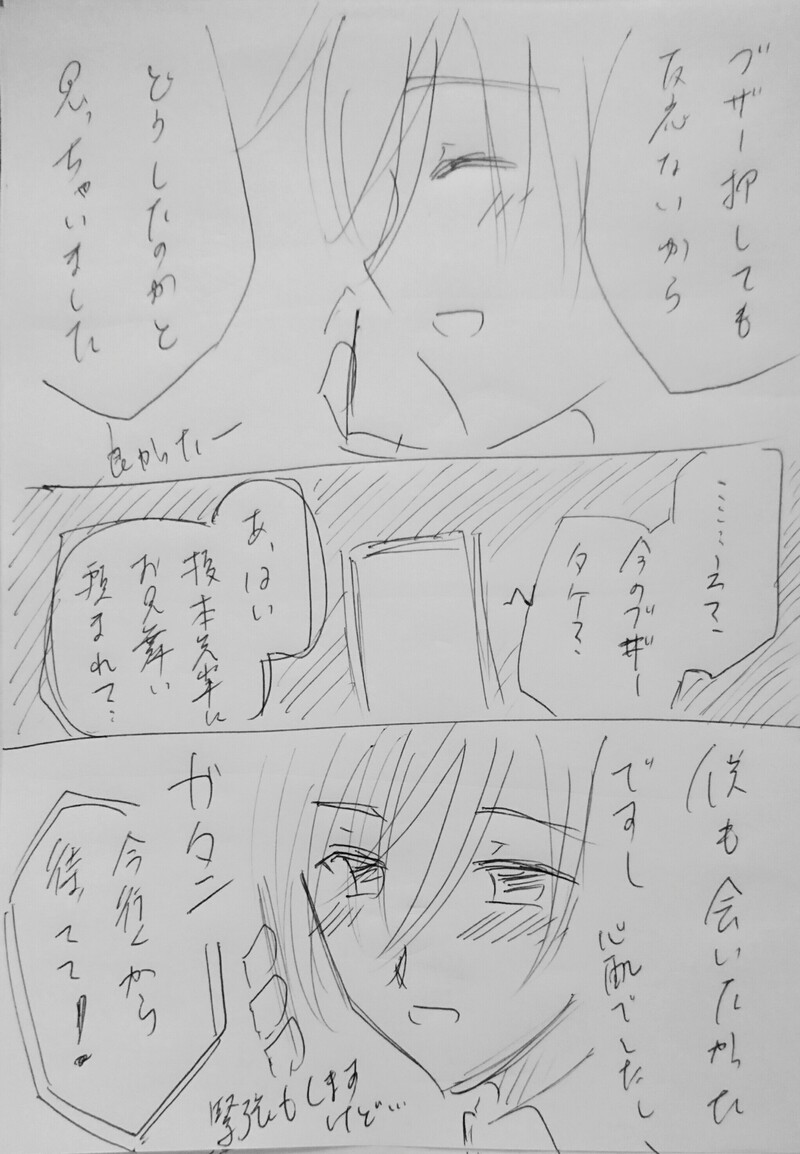 ブザー押しても
反応ないから
どうしたのかと
思っちゃいました
良かったー
……え?
今のブザー
タケ?
あ、はい
坂本先輩に
お見舞い
頼まれて…
僕も会いたかった
ですし
心配でしたし
緊張もします
けど…
ガタン
今行くから
待ってて!